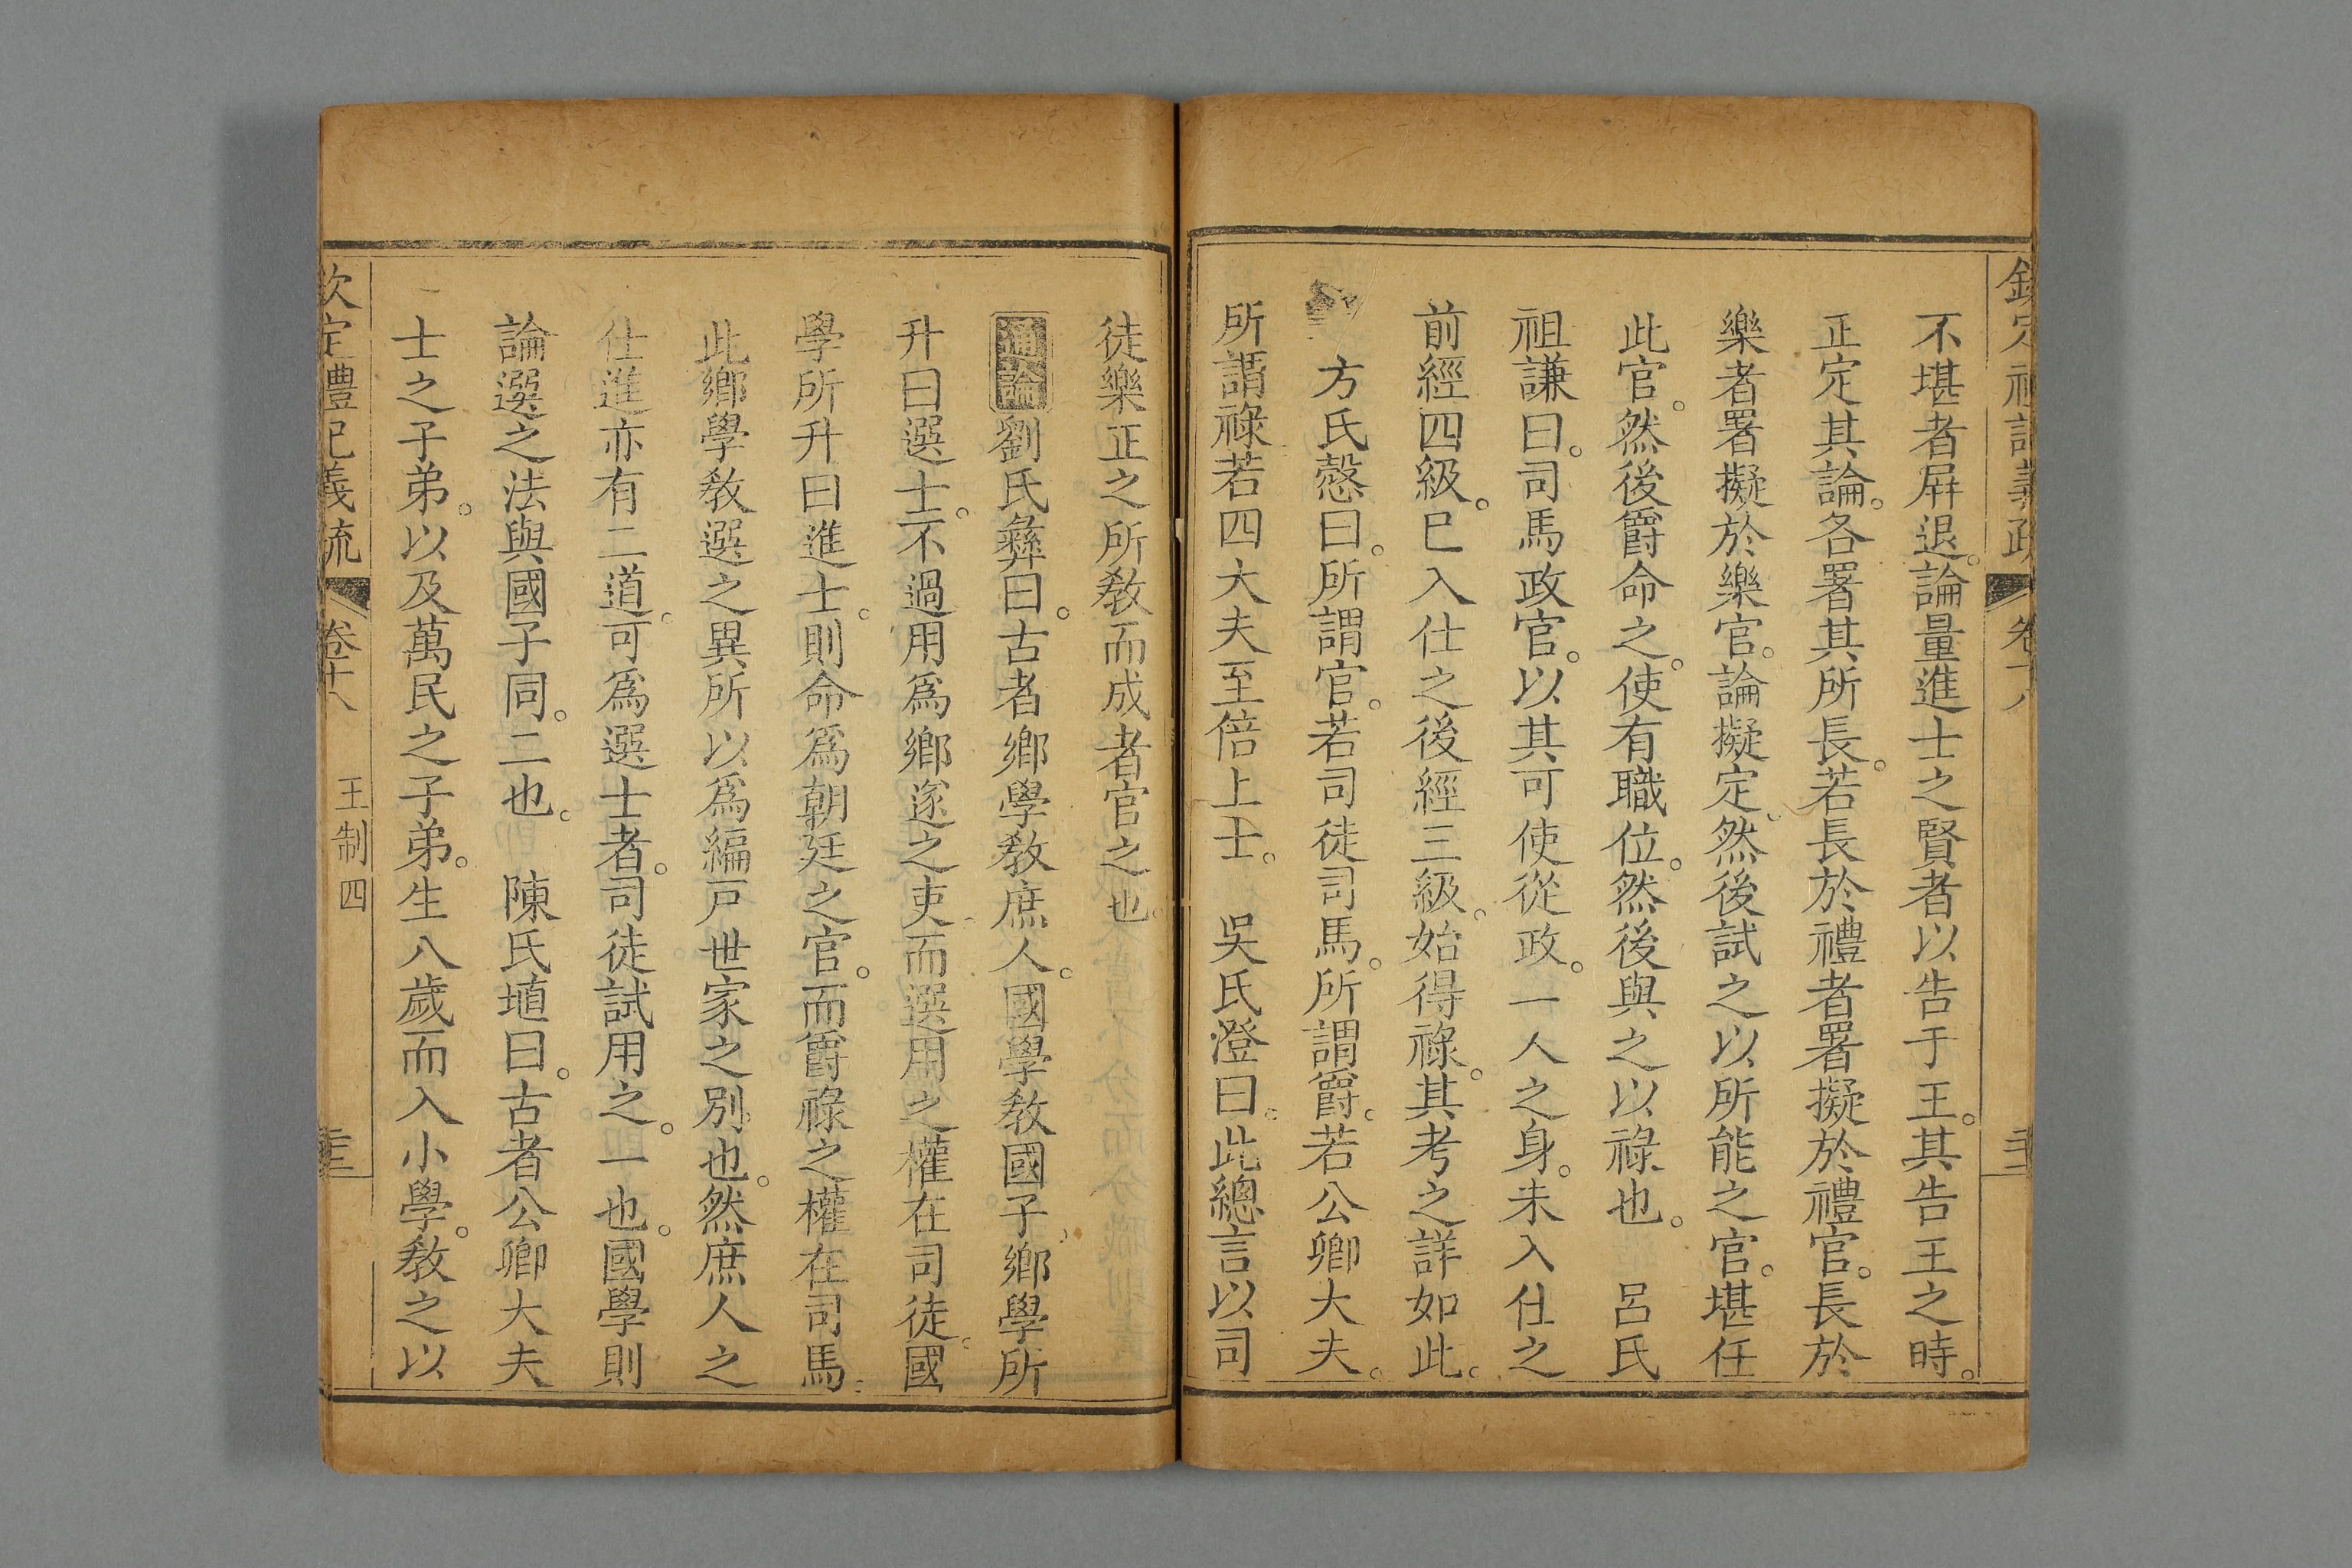 欽定禮記義疏 卷十八
不堪者屛退。論量進士之賢者以告于王。其告王之時。
正定其論。各署其所長。若長於禮者署擬於禮官。長於
樂者署擬於樂官。論擬定。然後試之以所能之官。堪任
此官。然後爵命之。使有職位。然後與之以祿也。 呂氏
祖謙曰。司馬政官。以其可使從政。一人之身。未入仕之
前經四級。巳入仕之後經三級。始得祿。其考之詳如此。
方氏慤曰。所謂官。若司徒司馬。所謂爵。若公卿大夫。
所謂祿若四大夫至倍上士。 吳氏澄曰。此總言以司
徒樂正之所敎而成者官之也。
通論劉氏彝曰。古者鄉學敎庶人。國學敎國子。鄉學所
升曰選士。不過用爲鄉遂之吏。而選用之權在司徒。國
學所升曰進士。則命爲朝廷之官。而爵祿之權在司馬。
此鄉學敎選之異所以爲編戸世家之別也。然庶人之
仕進亦有二道。可爲選士者。司徒試用之。一也。國學則
論選之法與國子同。二也。 陳氏埴曰。古者公卿大夫
士之子弟。以及萬民之子弟。生八歲而入小學。敎之以
欽定禮記義疏 卷十八 王制四